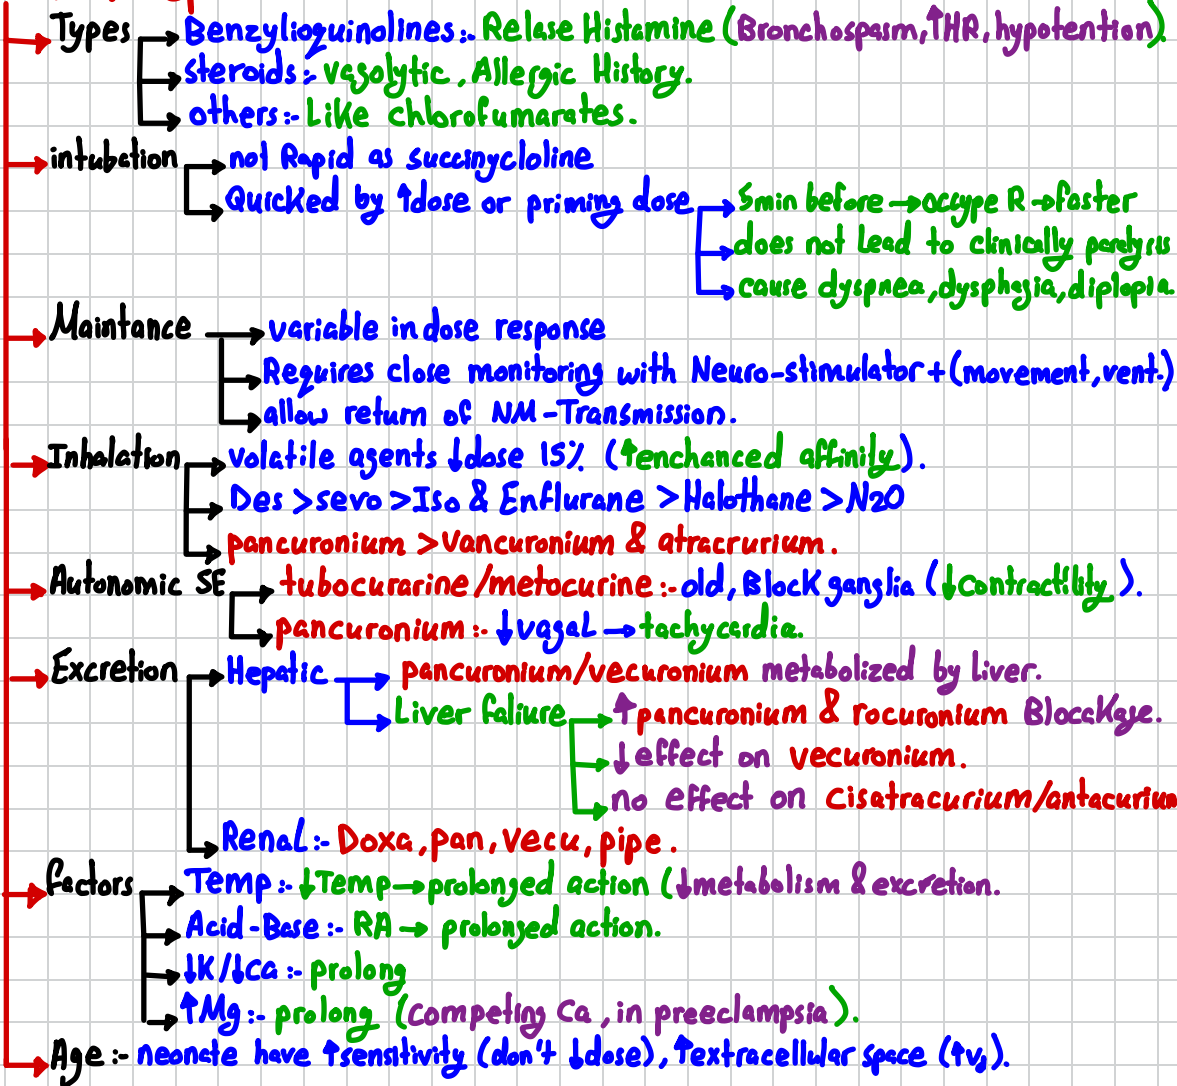 Types
Benzylioquinolines:- Relase Histamine (Bronchospasm,↑HR, hypotention).
steroids:- vagolytic, Allergic History.
others:- Like chlorofumarates.
intubation
not Rapid as succinycloline
Quicked by ↑dose or priming dose
5min before →occype R→faster
does not Lead to clinically paralysis
cause dyspnea, dysphagia, diplopia.
Maintance
variable in dose response
Requires close monitoring with Neuro-stimulator+(movement, vent.)
allow return of NM-Transmission.
Inhalation
volatile agents ↓dose 15% (↑enchanced affinity).
Des >sevo >Iso & Enflurane >Halothane >N2O
pancuronium >vancuronium & atracrurium.
Autonomic SE
tubocurarine/metocurine:- old, Block ganglia (↓contractility).
pancuronium:- ↓vagal →tachycardia.
Excretion
Hepatic
pancuronium/vecuronium metabolized by liver.
Liver faliure
↑pancuronium & rocuronium Blocakage.
↓effect on vecuronium.
no effect on cisatracurium/antacurium
Renal:- Doxa, pan, vecu, pipe.
factors
Temp:- ↓Temp→prolonged action (↓metabolism & excretion.
Acid-Base:- RA→ prolonged action.
↓K/↓Ca:- prolong
↑Mg:- prolong (competing Ca, in preeclampsia).
Age:- neonate have ↑sensitivity (don't ↓dose), ↑extracellular space (↑Vd).